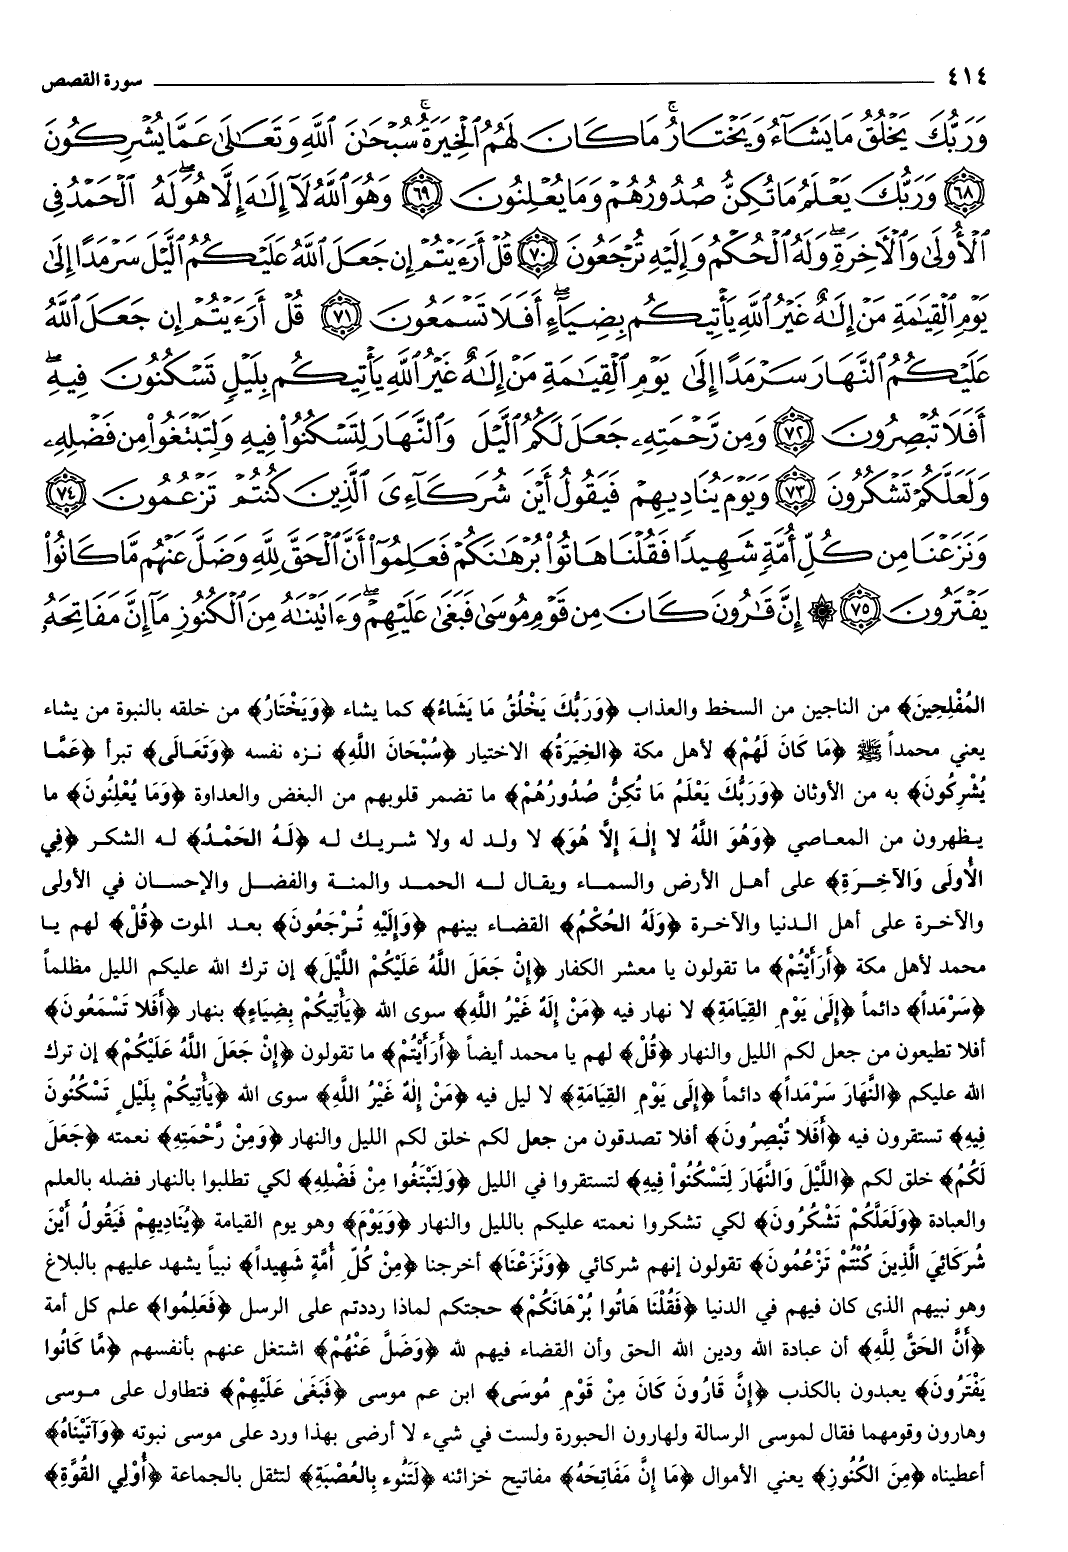 ٤١٤ سورة القصص
وَرَبُّكَ يَخْلُقُ مَا يَشَآءُ وَيَخْتَارُ ۗ مَا كَانَ لَهُمُ ٱلْخِيَرَةُ ۚ سُبْحَٰنَ ٱللَّهِ وَتَعَٰلَىٰ عَمَّا يُشْرِكُونَ
﴿٦٨﴾ وَرَبُّكَ يَعْلَمُ مَا تُكِنُّ صُدُورُهُمْ وَمَا يُعْلِنُونَ ﴿٦٩﴾ وَهُوَ ٱللَّهُ لَآ إِلَٰهَ إِلَّا هُوَ ۖ لَهُ ٱلْحَمْدُ فِى
ٱلْأُولَىٰ وَٱلْءَاخِرَةِ ۖ وَلَهُ ٱلْحُكْمُ وَإِلَيْهِ تُرْجَعُونَ ﴿٧٠﴾ قُلْ أَرَءَيْتُمْ إِن جَعَلَ ٱللَّهُ عَلَيْكُمُ ٱلَّيْلَ سَرْمَدًا إِلَىٰ
يَوْمِ ٱلْقِيَٰمَةِ مَنْ إِلَٰهٌ غَيْرُ ٱللَّهِ يَأْتِيكُم بِضِيَآءٍ ۖ أَفَلَا تَسْمَعُونَ ﴿٧١﴾ قُلْ أَرَءَيْتُمْ إِن جَعَلَ ٱللَّهُ
عَلَيْكُمُ ٱلنَّهَارَ سَرْمَدًا إِلَىٰ يَوْمِ ٱلْقِيَٰمَةِ مَنْ إِلَٰهٌ غَيْرُ ٱللَّهِ يَأْتِيكُم بِلَيْلٍ تَسْكُنُونَ فِيهِ ۖ
أَفَلَا تُبْصِرُونَ ﴿٧٢﴾ وَمِن رَّحْمَتِهِۦ جَعَلَ لَكُمُ ٱلَّيْلَ وَٱلنَّهَارَ لِتَسْكُنُوا۟ فِيهِ وَلِتَبْتَغُوا۟ مِن فَضْلِهِۦ
وَلَعَلَّكُمْ تَشْكُرُونَ ﴿٧٣﴾ وَيَوْمَ يُنَادِيهِمْ فَيَقُولُ أَيْنَ شُرَكَآءِىَ ٱلَّذِينَ كُنتُمْ تَزْعُمُونَ ﴿٧٤﴾
وَنَزَعْنَا مِن كُلِّ أُمَّةٍ شَهِيدًا فَقُلْنَا هَاتُوا۟ بُرْهَٰنَكُمْ فَعَلِمُوٓا۟ أَنَّ ٱلْحَقَّ لِلَّهِ وَضَلَّ عَنْهُم مَّا كَانُوا۟
يَفْتَرُونَ ﴿٧٥﴾ ۞ إِنَّ قَٰرُونَ كَانَ مِن قَوْمِ مُوسَىٰ فَبَغَىٰ عَلَيْهِمْ ۖ وَءَاتَيْنَٰهُ مِنَ ٱلْكُنُوزِ مَآ إِنَّ مَفَاتِحَهُۥ
المُفْلِحِينَ﴾ من الناجين من السخط والعذاب ﴿وَرَبُّكَ يَخْلُقُ مَا يَشَاءُ﴾ كما يشاء ﴿وَيَخْتَارُ﴾ من خلقه بالنبوة من يشاء
يعني محمداً ﷺ ﴿مَا كَانَ لَهُمْ﴾ لأهل مكة ﴿الخِيَرَةُ﴾ الاختيار ﴿سُبْحَانَ اللَّهِ﴾ نزه نفسه ﴿وَتَعَالَى﴾ تبرأ ﴿عَمَّا
يُشْرِكُونَ﴾ به من الأوثان ﴿وَرَبُّكَ يَعْلَمُ مَا تُكِنُّ صُدُورُهُمْ﴾ ما تضمر قلوبهم من البغض والعداوة ﴿وَمَا يُعْلِنُونَ﴾ ما
يظهرون من المعاصي ﴿وَهُوَ اللَّهُ لا إِلٰهَ إِلَّا هُوَ﴾ لا ولد له ولا شريك له ﴿لَهُ الحَمْدُ﴾ له الشكر ﴿فِي
الأُولَى وَالآخِرَةِ﴾ على أهل الأرض والسماء ويقال له الحمد والمنة والفضل والإحسان في الأولى
والآخرة على أهل الدنيا والآخرة ﴿وَلَهُ الحُكْمُ﴾ القضاء بينهم ﴿وَإِلَيْهِ تُرْجَعُونَ﴾ بعد الموت ﴿قُلْ﴾ لهم يا
محمد لأهل مكة ﴿أَرَأَيْتُمْ﴾ ما تقولون يا معشر الكفار ﴿إِنْ جَعَلَ اللَّهُ عَلَيْكُمْ اللَّيْلَ﴾ إن ترك الله عليكم الليل مظلماً
﴿سَرْمَداً﴾ دائماً ﴿إِلَىٰ يَوْمِ القِيَامَةِ﴾ لا نهار فيه ﴿مَنْ إِلهٌ غَيْرُ اللَّهِ﴾ سوى الله ﴿يَأْتِيكُمْ بِضِيَاءٍ﴾ بنهار ﴿أَفَلا تَسْمَعُونَ﴾
أفلا تطيعون من جعل لكم الليل والنهار ﴿قُلْ﴾ لهم يا محمد أيضاً ﴿أَرَأَيْتُمْ﴾ ما تقولون ﴿إِنْ جَعَلَ اللَّهُ عَلَيْكُمْ﴾ إن ترك
الله عليكم ﴿النَّهَارَ سَرْمَداً﴾ دائماً ﴿إِلَى يَوْمِ القِيَامَةِ﴾ لا ليل فيه ﴿مَنْ إِلٰهٌ غَيْرُ اللَّهِ﴾ سوى الله ﴿يَأْتِيكُمْ بِلَيْلٍ تَسْكُنُونَ
فِيهِ﴾ تستقرون فيه ﴿أَفَلا تُبْصِرُونَ﴾ أفلا تصدقون من جعل لكم خلق لكم الليل والنهار ﴿وَمِنْ رَّحْمَتِهِ﴾ نعمته ﴿جَعَلَ
لَكُمُ﴾ خلق لكم ﴿اللَّيْلَ وَالنَّهَارَ لِتَسْكُنُواْ فِيهِ﴾ لتستقروا في الليل ﴿وَلِتَبْتَغُوا مِنْ فَضْلِهِ﴾ لكي تطلبوا بالنهار فضله بالعلم
والعبادة ﴿وَلَعَلَّكُمْ تَشْكُرُونَ﴾ لكي تشكروا نعمته عليكم بالليل والنهار ﴿وَيَوْمَ﴾ وهو يوم القيامة ﴿يُنَادِيهِمْ فَيَقُولُ أَيْنَ
شُرَكَائِيَ الَّذِينَ كُنْتُمْ تَزْعُمُونَ﴾ تقولون إنهم شركائي ﴿وَنَزَعْنَا﴾ أخرجنا ﴿مِنْ كُلِّ أُمَّةٍ شَهِيداً﴾ نبياً يشهد عليهم بالبلاغ
وهو نبيهم الذى كان فيهم في الدنيا ﴿فَقُلْنَا هَاتُوا بُرْهَانَكُمْ﴾ حجتكم لماذا رددتم على الرسل ﴿فَعَلِمُوا﴾ علم كل أمة
﴿أَنَّ الحَقَّ لِلَّهِ﴾ أن عبادة الله ودين الله الحق وأن القضاء فيهم لله ﴿وَضَلَّ عَنْهُمْ﴾ اشتغل عنهم بأنفسهم ﴿مَّا كَانُوا
يَفْتَرُونَ﴾ يعبدون بالكذب ﴿إِنَّ قَارُونَ كَانَ مِنْ قَوْمِ مُوسَى﴾ ابن عم موسى ﴿فَبَغَى عَلَيْهِمْ﴾ فتطاول على موسى
وهارون وقومهما فقال لموسى الرسالة ولهارون الحبورة ولست في شيء لا أرضى بهذا ورد على موسى نبوته ﴿وَآتَيْنَاهُ﴾
أعطيناه ﴿مِنَ الكُنُوزِ﴾ يعني الأموال ﴿مَا إِنَّ مَفَاتِحَهُ﴾ مفاتيح خزائنه ﴿لَتَنُوء بِالعُصْبَةِ﴾ لتثقل بالجماعة ﴿أُوْلِي القُوَّةِ﴾